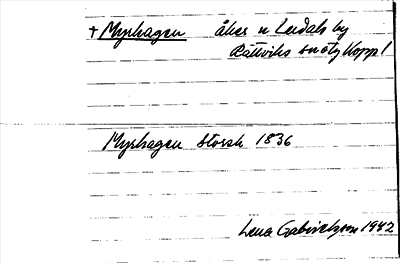 + Myrhagen åker n Leidals by
Rättviks sn o tg Kopp l
Myrhagen Storsk 1836
Lena Gabrielsson 1942